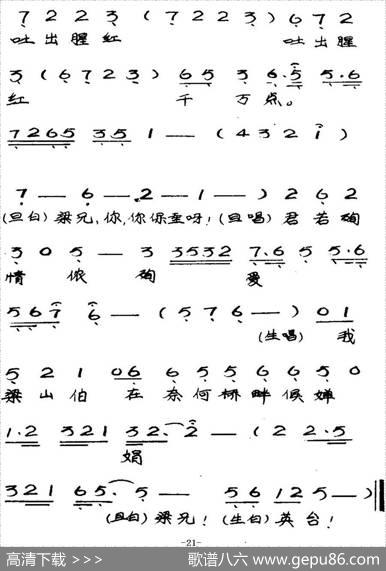 7 2 2 3 ( 7 2 2 3 ) 6 7 2
吐出腥红 吐出腥
3 ( 6 7 2 3 ) 6 5 3 6·5 5·6
红 千 万点。
7 2 6 5 3 5 1 — ( 4 3 2 1 )
7 — 6 — 2 — 1 — ) 2 6 2
(旦白) 梁兄,你,你保重呀! (旦唱) 君若殉
3 0 5 — 3 3 5 3 2 7·6 5 5·6
情 侬 殉 爱
5 6 7 6 — ( 5 7 6 — ) 0 1
(生唱) 我
5 2 1 0 6 6 5 6 6 5 0
梁山伯 在奈何桥畔候婵
1·2 3 2 1 3 2· 2 — ( 2 2·5
娟
3 2 1 6 5· 5 — 5 6 1 2 5 — )
(旦白) 梁兄! (生白) 英台!
-21-
高清下载 >>> 歌谱八六 www.gepu86.com